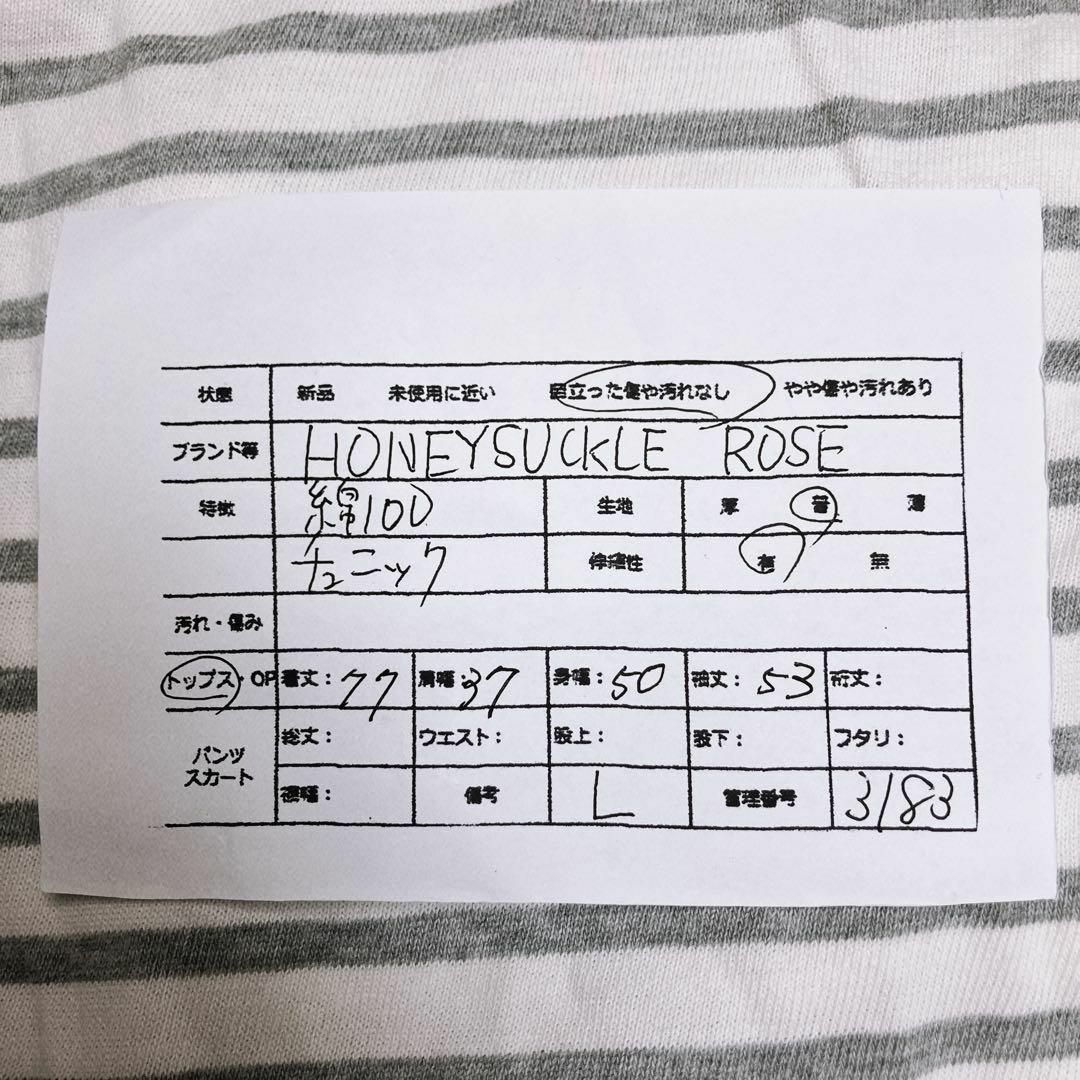 状態 新品 未使用に近い 目立った傷や汚れなし やや傷や汚れあり
ブランド等 HONEYSUCKLE ROSE
特徴 綿100 生地 厚 普 薄
チュニック 伸縮性 有 無
汚れ・傷み
トップス・OP 着丈：77 肩幅：37 身幅：50 袖丈：53 裄丈：
パンツ スカート 総丈： ウエスト： 股上： 股下： ワタリ：
裾幅： 備考 L 管理番号 3183